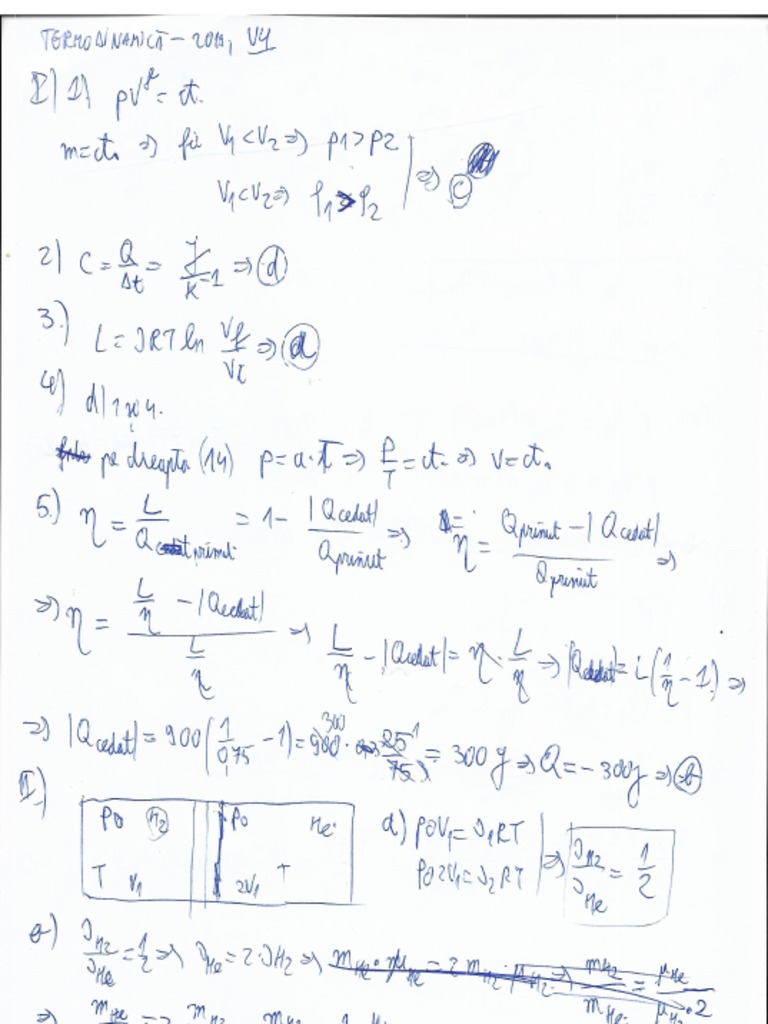 TERMODINAMICĂ – 2019, V4
I) 1) pV^γ = ct.
m=ct. ⇒ fie V1<V2 ⇒ p1>p2
V1<V2 ⇒ ρ1>ρ2 ⇒ c
2) C = Q/Δt = J/K⁻¹ ⇒ d
3.) L = νRT ln Vf/Vi ⇒ d
4) d) 1 și 4.
pe dreapta (14) p=a·T ⇒ p/T = ct. ⇒ V=ct.
5.) η = L/Qprimit = 1 - |Qcedat|/Qprimit ⇒ η = (Qprimit - |Qcedat|)/Qprimit ⇒
⇒ η = (L/η - |Qcedat|)/(L/η) ⇒ L/η - |Qcedat| = η · L/η ⇒ |Qcedat| = L(1/η - 1) ⇒
⇒ |Qcedat| = 900(1/0,75 - 1) = 900 · 25/75 = 300 J ⇒ Q = -300J ⇒ b
II.)
p0 H2 p0 He
T V1 2V1 T
a) p0V1 = ν1RT
p02V1 = ν2RT ⇒ νH2/νHe = 1/2
b) νH2/νHe = 1/2 ⇒ νHe = 2·νH2 ⇒